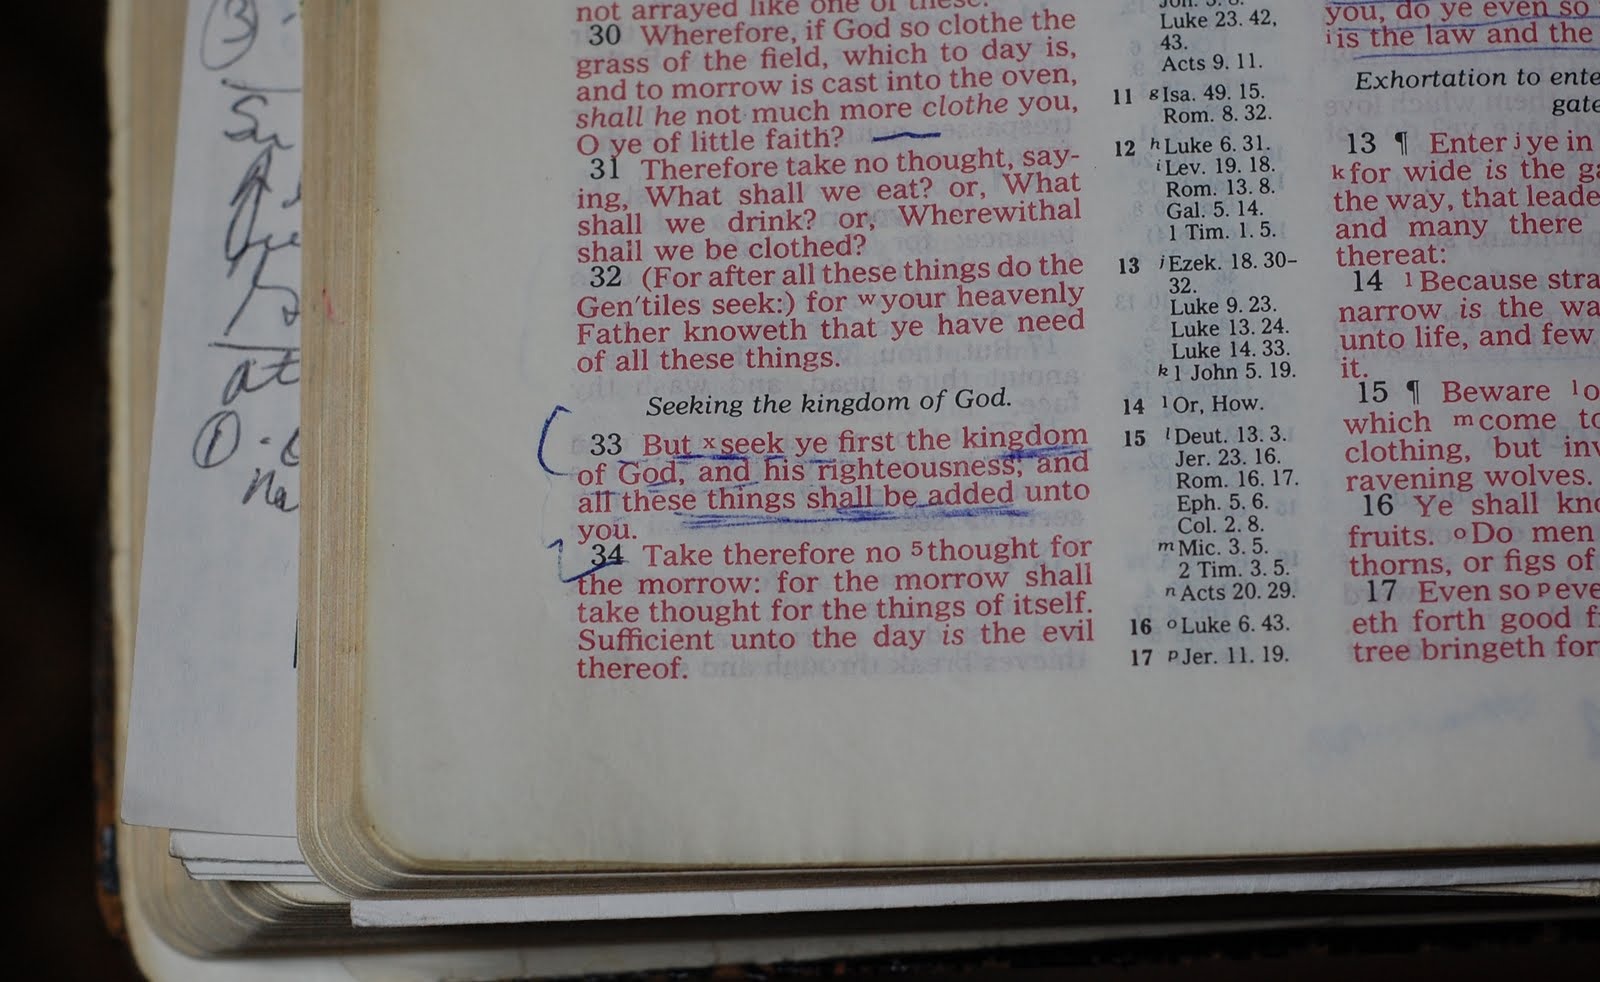 not arrayed like one of these.
30 Wherefore, if God so clothe the
grass of the field, which to day is,
and to morrow is cast into the oven,
shall he not much more clothe you,
O ye of little faith?
31 Therefore take no thought, say-
ing, What shall we eat? or, What
shall we drink? or, Wherewithal
shall we be clothed?
32 (For after all these things do the
Gen'tiles seek:) for w your heavenly
Father knoweth that ye have need
of all these things.
Seeking the kingdom of God.
33 But x seek ye first the kingdom
of God, and his righteousness; and
all these things shall be added unto
you.
34 Take therefore no 5 thought for
the morrow: for the morrow shall
take thought for the things of itself.
Sufficient unto the day is the evil
thereof.
Luke 23. 42,
43.
Acts 9. 11.
11 g Isa. 49. 15.
Rom. 8. 32.
12 h Luke 6. 31.
i Lev. 19. 18.
Rom. 13. 8.
Gal. 5. 14.
1 Tim. 1. 5.
13 j Ezek. 18. 30–
32.
Luke 9. 23.
Luke 13. 24.
Luke 14. 33.
k 1 John 5. 19.
14 1 Or, How.
15 l Deut. 13. 3.
Jer. 23. 16.
Rom. 16. 17.
Eph. 5. 6.
Col. 2. 8.
m Mic. 3. 5.
2 Tim. 3. 5.
n Acts 20. 29.
16 o Luke 6. 43.
17 p Jer. 11. 19.
you, do ye even so
i is the law and the
Exhortation to ente
gate
13 ¶ Enter j ye in
k for wide is the ga
the way, that leade
and many there
thereat:
14 1 Because stra
narrow is the wa
unto life, and few
it.
15 ¶ Beware l o
which m come to
clothing, but inv
ravening wolves.
16 Ye shall kno
fruits. o Do men
thorns, or figs of
17 Even so p eve
eth forth good f
tree bringeth for
3
at
1